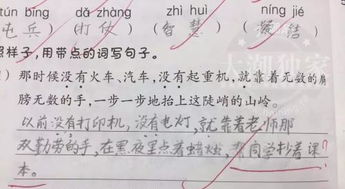 tún bīng dǎ zhàng zhì huì níng jié
(屯兵) (打仗) (智慧) (凝结)
照样子，用带点的词写句子。
) 那时候没有火车、汽车，没有起重机，就靠着无数的肩
膀无数的手，一步一步地抬上这陡峭的山岭。
以前没有打印机，没有电灯，就靠着老师那
双勤劳的手，在黑夜里点着蜡烛，帮同学抄着课
本。
大潮独家